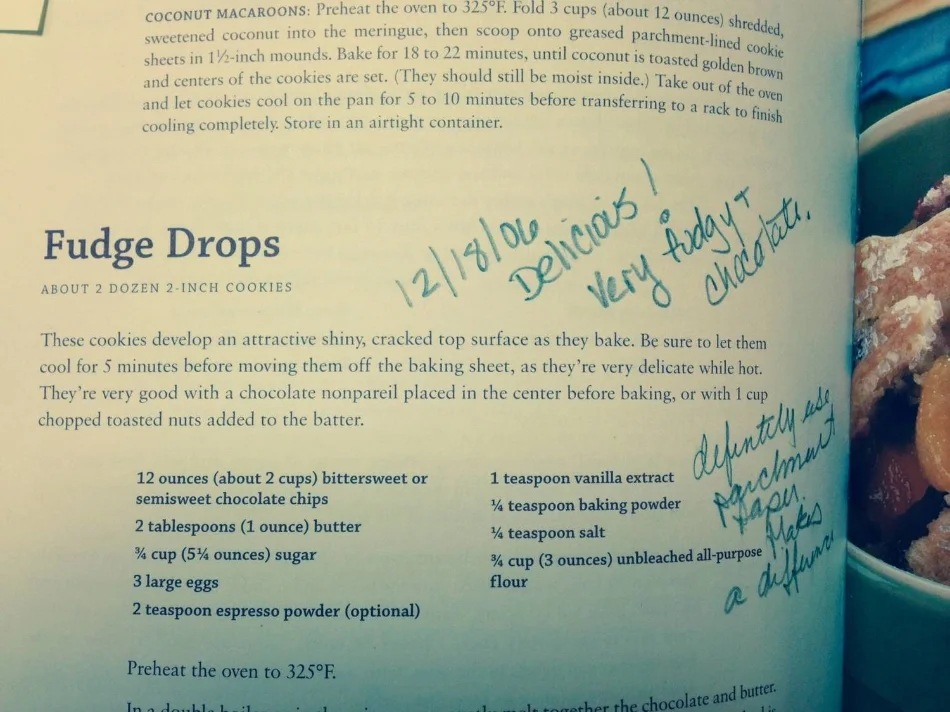 COCONUT MACAROONS: Preheat the oven to 325°F. Fold 3 cups (about 12 ounces) shredded,
sweetened coconut into the meringue, then scoop onto greased parchment-lined cookie
sheets in 1½-inch mounds. Bake for 18 to 22 minutes, until coconut is toasted golden brown
and centers of the cookies are set. (They should still be moist inside.) Take out of the oven
and let cookies cool on the pan for 5 to 10 minutes before transferring to a rack to finish
cooling completely. Store in an airtight container.
12/18/06
Delicious!
Very fudgy +
chocolate.
Fudge Drops
ABOUT 2 DOZEN 2-INCH COOKIES
These cookies develop an attractive shiny, cracked top surface as they bake. Be sure to let them
cool for 5 minutes before moving them off the baking sheet, as they're very delicate while hot.
They're very good with a chocolate nonpareil placed in the center before baking, or with 1 cup
chopped toasted nuts added to the batter.
definitely use
parchment
paper.
Makes
a difference
12 ounces (about 2 cups) bittersweet or
semisweet chocolate chips
2 tablespoons (1 ounce) butter
¾ cup (5¼ ounces) sugar
3 large eggs
2 teaspoon espresso powder (optional)
1 teaspoon vanilla extract
¼ teaspoon baking powder
¼ teaspoon salt
¾ cup (3 ounces) unbleached all-purpose
flour
Preheat the oven to 325°F.
In a double together the chocolate and butter.